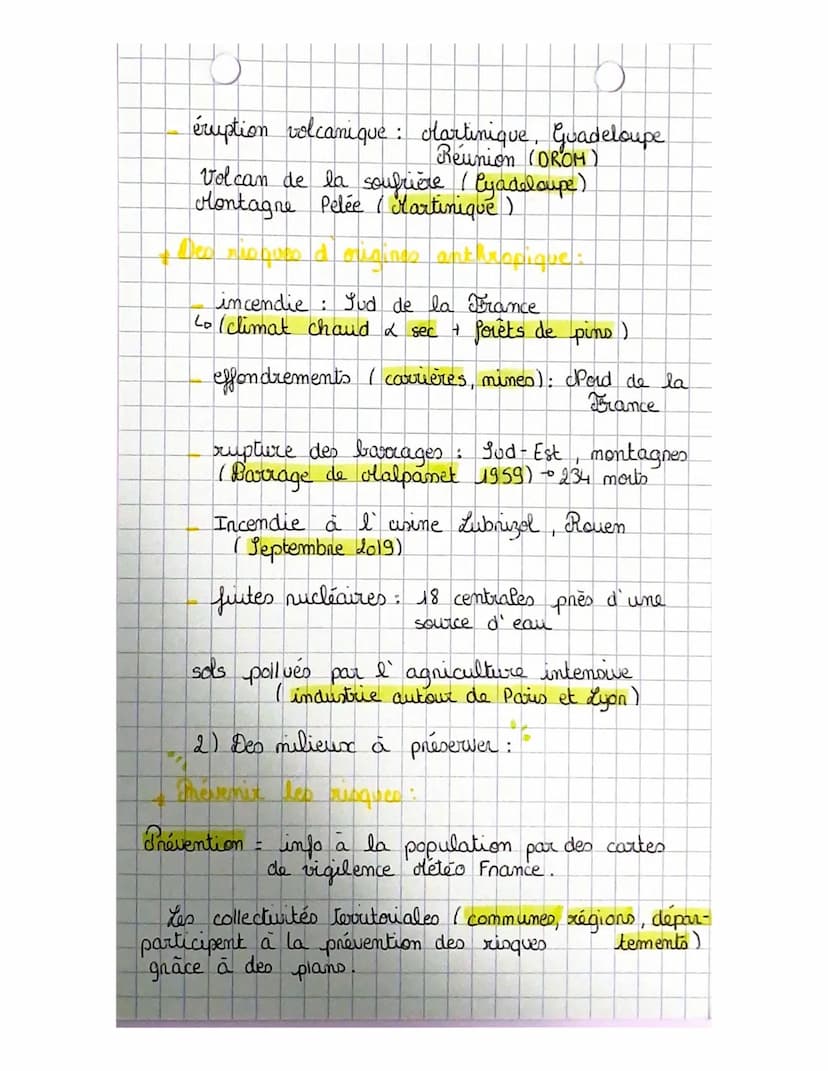 - éruption volcanique : Martinique, Guadeloupe
Réunion (DROM)
Volcan de la soufrière (Guadeloupe)
Montagne Pelée (Martinique)
+ Des risques d'origines anthropique :
- incendie : Sud de la France
↳ (climat chaud & sec + forêts de pins)
- effondrements (carrières, mines) : Nord de la
France
- rupture des barrages : Sud-Est, montagnes
(Barrage de Malpasset 1959) → 234 morts
- Incendie à l'usine Lubrizol, Rouen
(Septembre 2019)
- fuites nucléaires : 18 centrales près d'une
source d'eau
sols pollués par l'agriculture intensive
(industrie autour de Paris et Lyon)
2) Des milieux à préserver :
+ Prévenir les risques :
Prévention = info à la population par des cartes
de vigilence Météo France.
Les collectivités territoriales (communes, régions, dépar-
participent à la prévention des risques tements)
grâce à des plans.